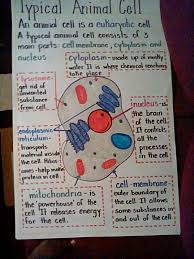 Typical Animal Cell
An animal cell is a eukaryotic cell.
A typical animal cell consists of 3
main parts: cell membrane, cytoplasm and
nucleus
cytoplasm - made up of mostly
water. It is where chemical reactions
take place
lysosome-
get rid of
unwanted
substance
from cell.
nucleus - is
the brain
of the cell.
It controls
all the
processes
in the cell
endoplasmic
reticulum-
transports
material inside
the cell.
help make
protein in cell
mitochondria - is
the 'powerhouse' of the
cell. It releases energy
for the cell.
cell-membrane-
outer boundary of
the cell. It allows
some substances in
and out of the cell.